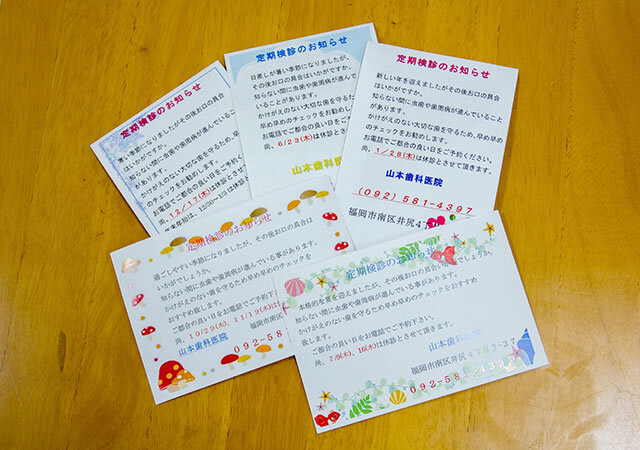 定期検診のお知らせ
寒い季節になりましたがその後お口の具合
はいかがですか。
知らない間に虫歯や歯周病が進んでいること
があります。
かけがえのない大切な歯を守るため、早め
のチェックをお勧めします。
お電話でご都合の良い日をご予約
尚、12/17(木)は休診とさせて
年末年始は、12/30～1/3は休診
定期検診のお知らせ
日差しが暑い季節になりましたが、
その後お口の具合はいかがですか。
知らない間に虫歯や歯周病が進んで
いることがあります。
かけがえのない大切な歯を守るため
早め早めのチェックをお勧めします。
お電話でご都合の良い日をご予約
尚、6/23(木)は休診とさせて
山本歯科医院
定期検診のお知らせ
新しい年を迎えましたがその後お口の具合
はいかがですか。
知らない間に虫歯や歯周病が進んでいること
があります。
かけがえのない大切な歯を守るため、早め早め
のチェックをお勧めします。
お電話でご都合の良い日をご予約ください。
尚、1/28(木)は休診とさせて頂きます。
山本歯科医院
(092) 581-4397
福岡市南区井尻4
定期検診のお知らせ
過ごしやすい季節になりましたが、その後お口の具合は
いかがでしょうか。
知らない間に虫歯や歯周病が進んでいる事があります。
かけがえのない歯を守るため早め早めのチェックを
おすすめ致します。
ご都合の良い日をお電話下さい。ご予約
尚、10/29(木)、11/19(木)は
山本歯科医院
福岡市南区
092-58
定期検診のお知らせ
本格的な夏を迎えましたが、その後お口の具合い
知らない間に虫歯や歯周病が進んでいる事があります。
かけがえのない歯を守るため早め早めのチェックをおすすめ
致します。
ご都合の良い日をお電話でご予約下さい。
尚、7/9(木)、16(木)は休診とさせて頂きます。
山本歯科医院
福岡市南区井尻4丁目3-37
092-581-4397